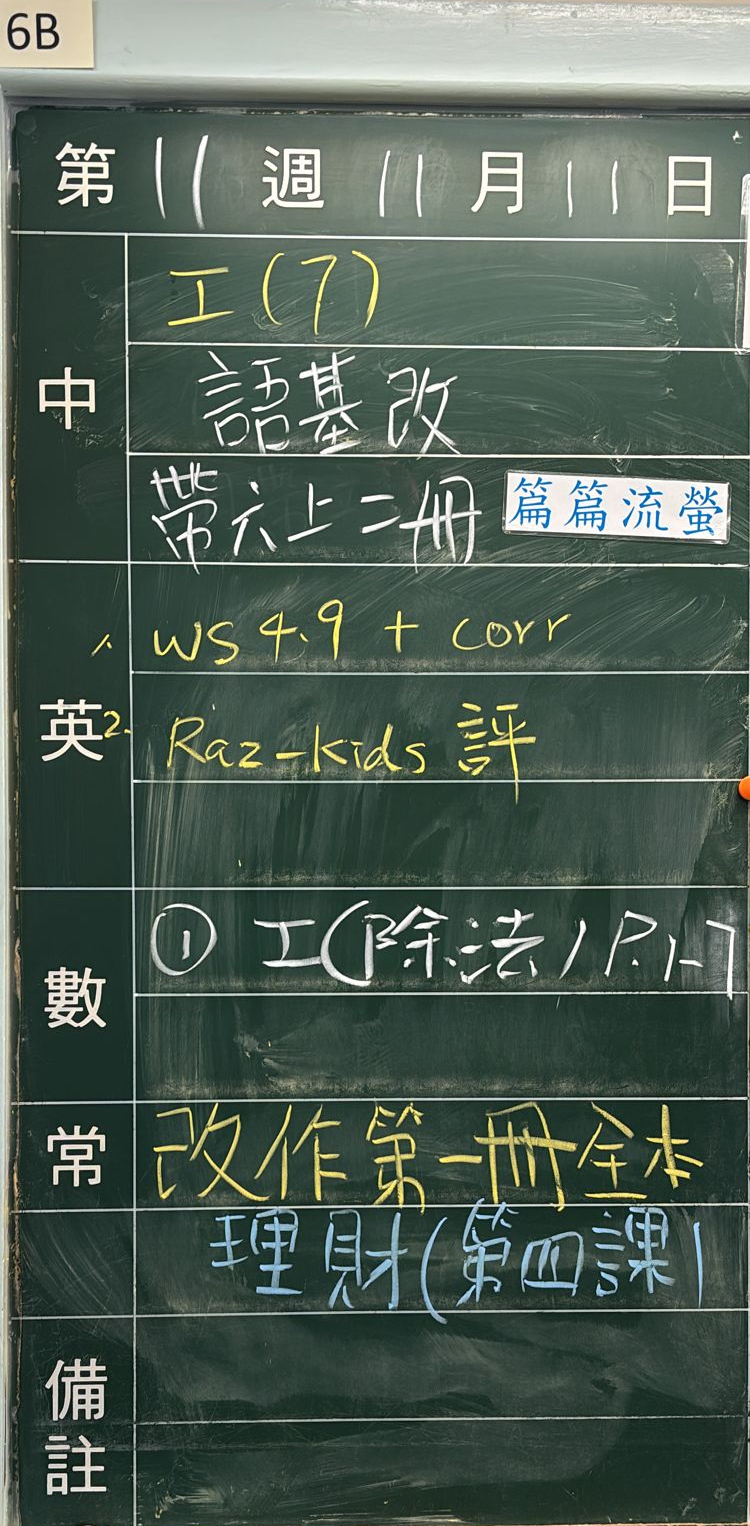 6B
第 11 週 11 月 11 日
中
工(7)
語基改
帶六上二冊 篇篇流螢
英
1. WS 4.9 + corr
2. Raz-kids 評
數
① 工(除法) P.1-7
常
改作第一冊全本
理財(第四課)
備註